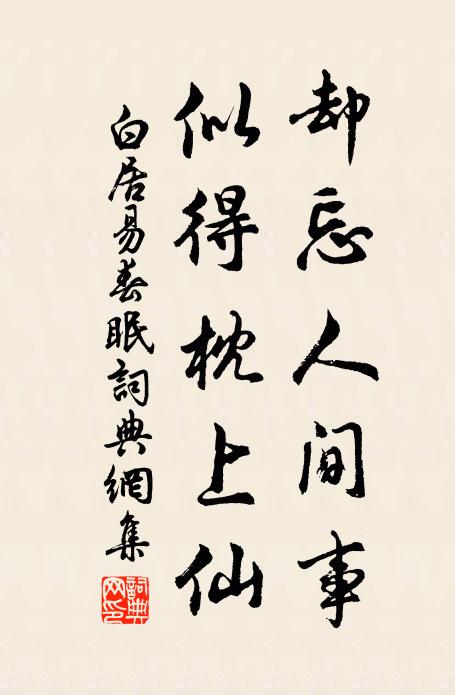 却忘人间事
似得枕上仙
白居易春眠詞典網集
詞典网印